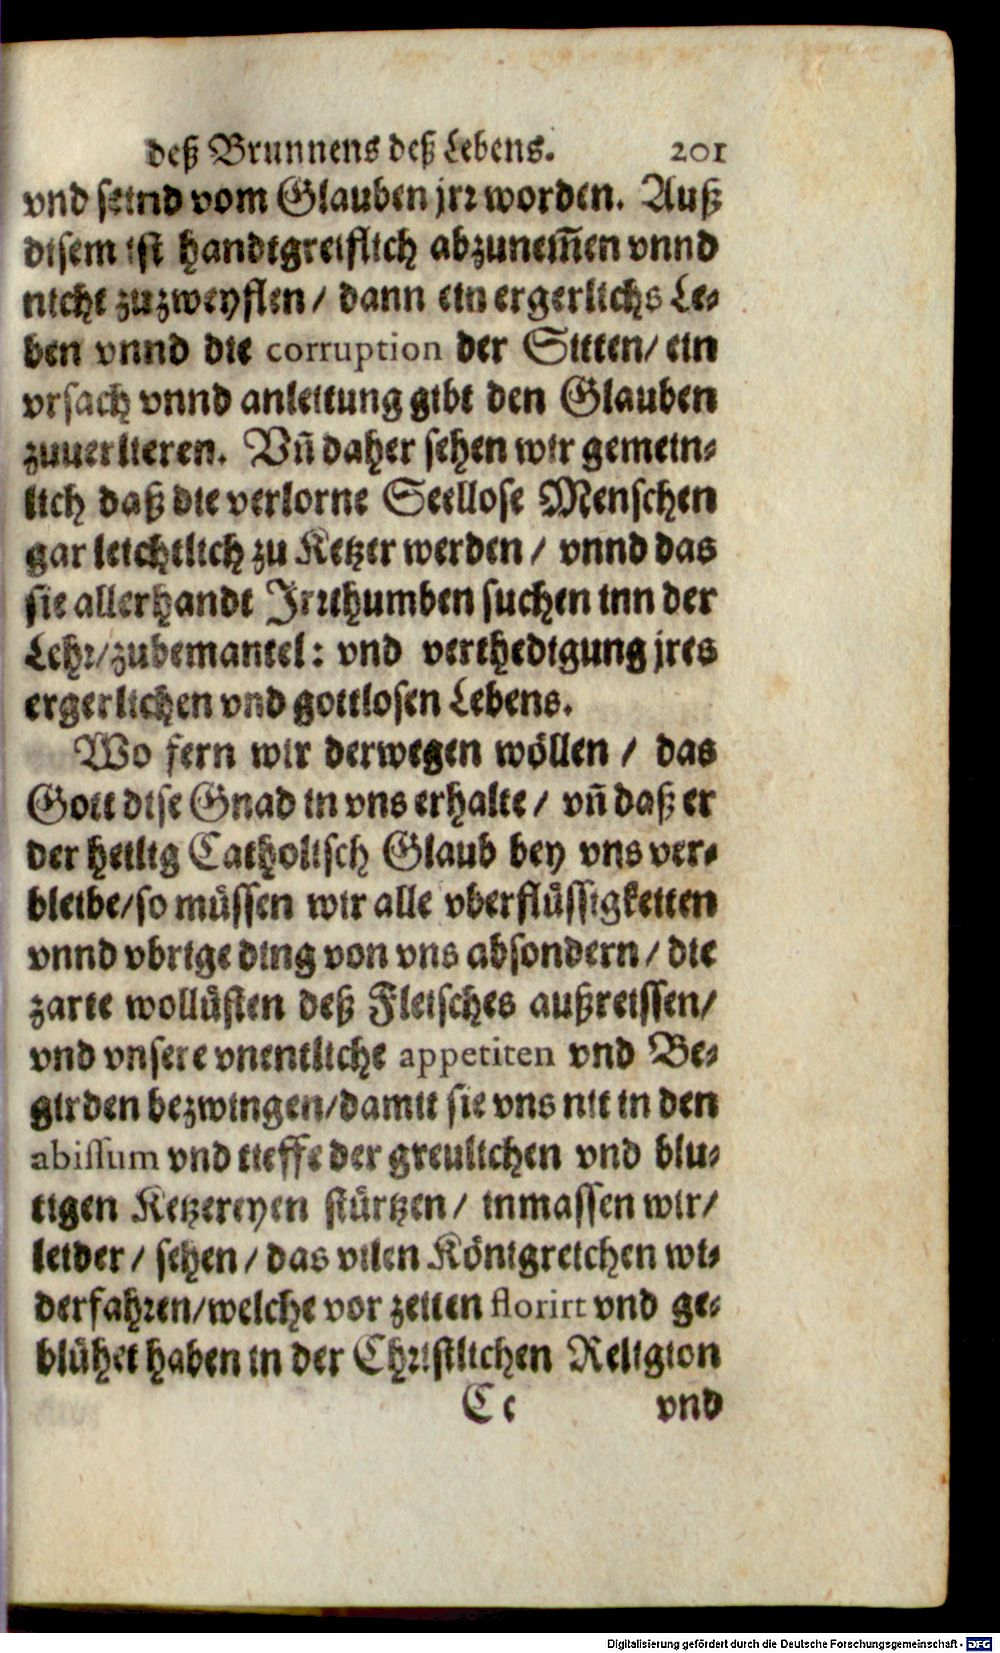 deß Brunnens deß Lebens. 201
vnd seind vom Glauben jrr worden. Auß
disem ist handtgreiflich abzunem̃en vnnd
nicht zuzweyflen / dann ein ergerlichs Le-
ben vnnd die corruption der Sitten/ ein
vrsach vnnd anleitung gibt den Glauben
zuuerlieren. Vñ daher sehen wir gemein-
lich daß die verlorne Seellose Menschen
gar leichtlich zu Ketzer werden / vnnd das
sie allerhandt Jrrthumben suchen inn der
Lehr/zubemantel: vnd verthedigung jres
ergerlichen vnd gottlosen Lebens.
Wo fern wir derwegen wöllen / das
Gott dise Gnad in vns erhalte / vñ daß er
der heilig Catholisch Glaub bey vns ver-
bleibe/so müssen wir alle vberflüssigkeiten
vnnd vbrige ding von vns absondern / die
zarte wollüsten deß Fleisches außreissen/
vnd vnsere vnentliche appetiten vnd Be-
girden bezwingen/damit sie vns nit in den
abissum vnd tieffe der greulichen vnd blu-
tigen Ketzereyen stürtzen / inmassen wir/
leider / sehen / das vilen Königreichen wi-
derfahren/welche vor zeiten florirt vnd ge-
blühet haben in der Christlichen Religion
Cc vnd
Digitalisierung gefördert durch die Deutsche Forschungsgemeinschaft - DFG